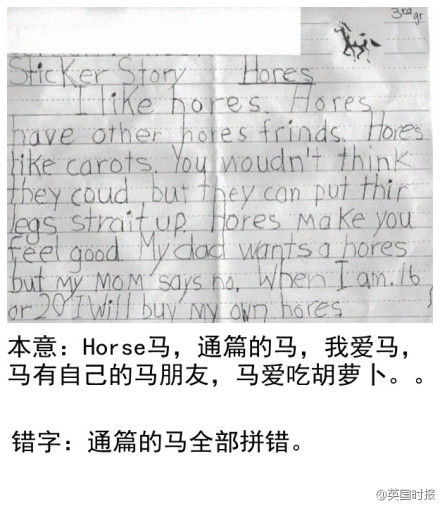 3rd gr
Sticker Story Hores
I like hores. Hores
have other hores frinds. Hores
like carots. You woudn't think
they coud but they can put thir
legs strait up. Hores make you
feel good. My dad wants a hores
but my mom says no. When I am 16
or 20 I will buy my own hores
本意：Horse马，通篇的马，我爱马，
马有自己的马朋友，马爱吃胡萝卜。。
错字：通篇的马全部拼错。
@英国时报